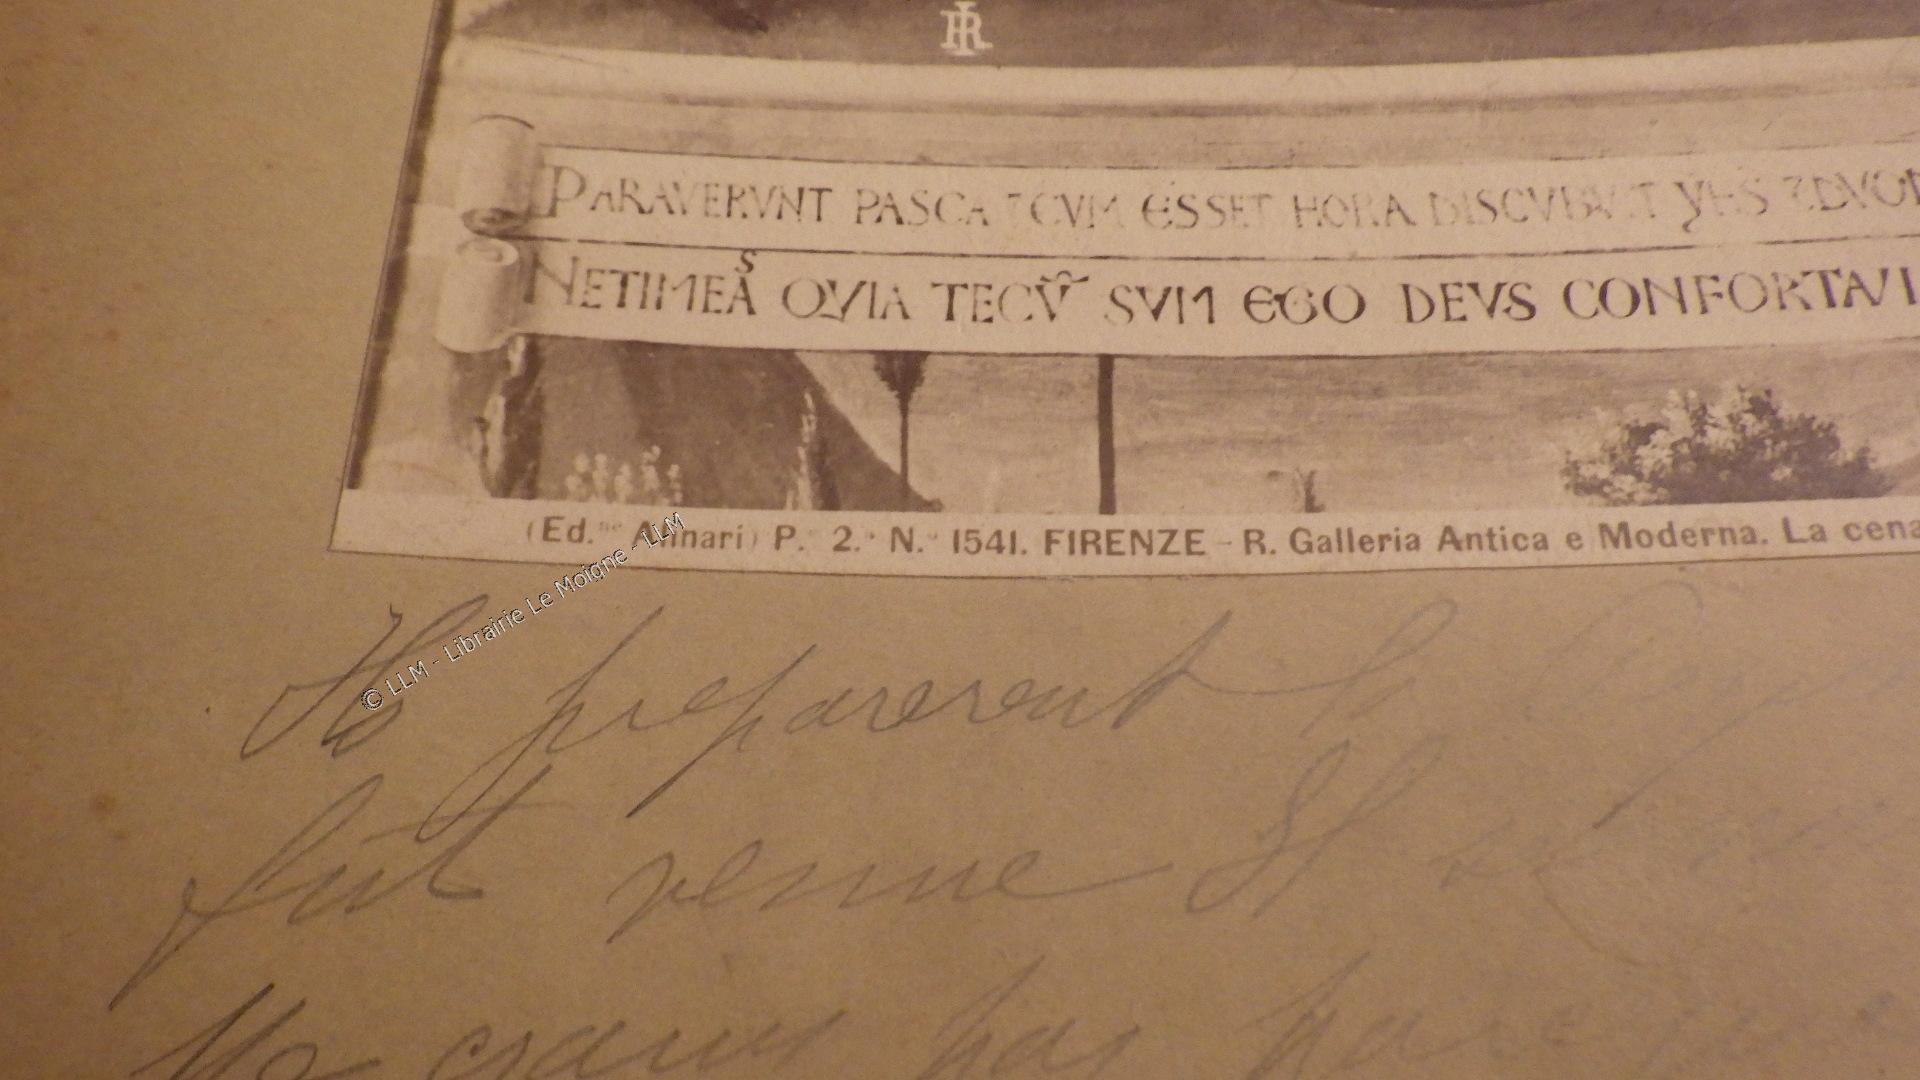 PARAVERVNT PASCA CVM ESSET HORA DISCVBV.T YHS
NETIMEAS QVIA TECV SVM EGO DEVS CONFORTAVI
(Ed.ne Alinari) P.e 2.a N.o 1541. FIRENZE - R. Galleria Antica e Moderna. La cena
© LLM - Librairie Le Moigne - LLM
Ils preparerent la
fut venue Il se
Ne crains pas parce